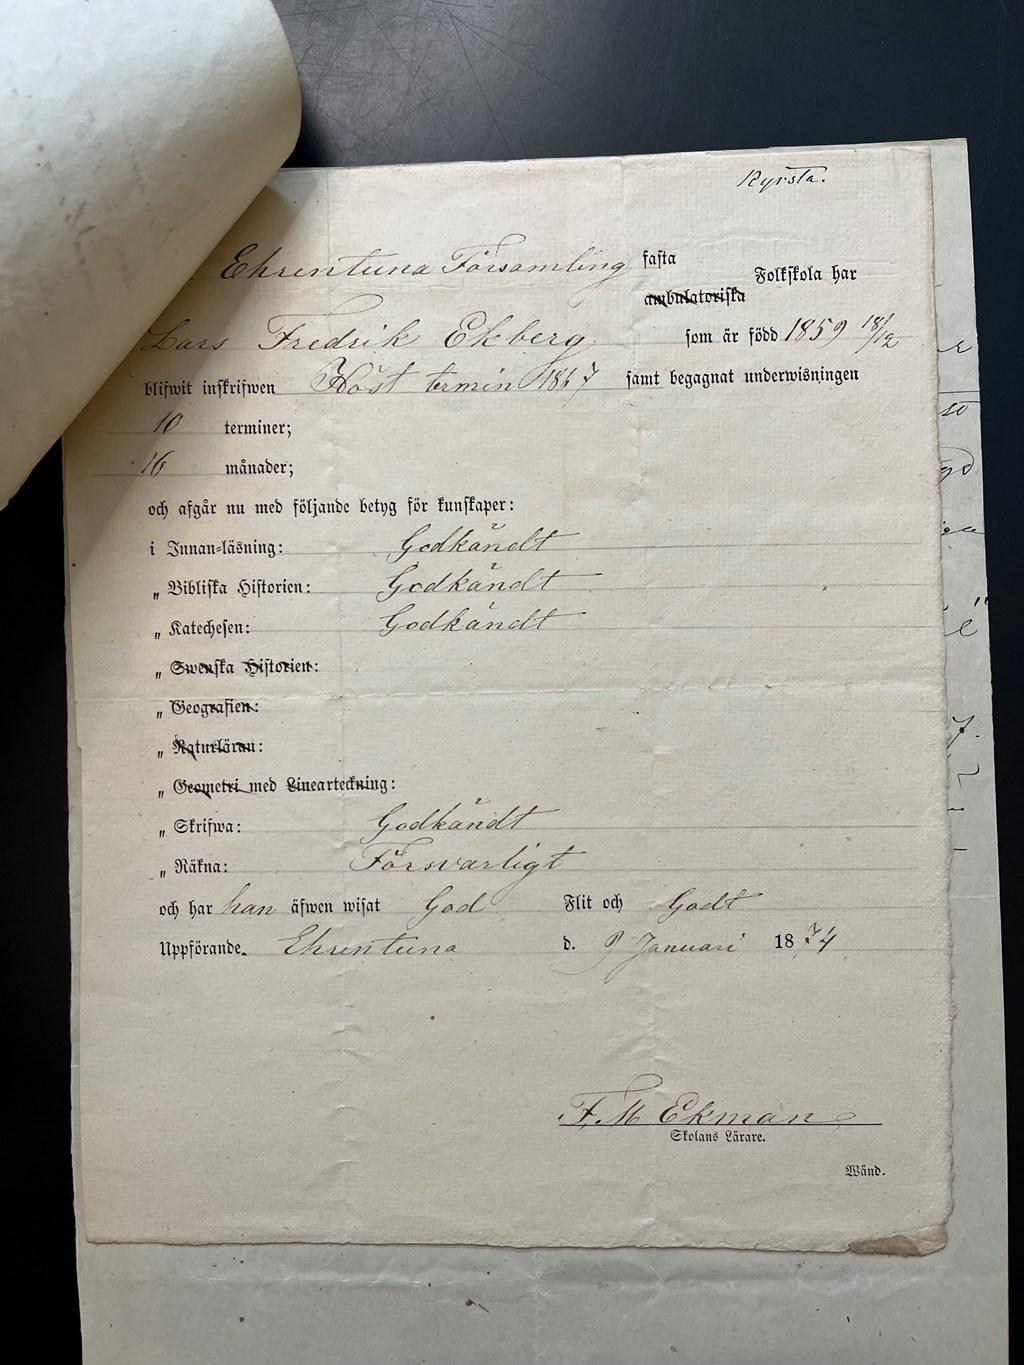 Kyrsta.
Ehrentuna Församling fasta
ambulatoriska Folkskola har
Lars Fredrik Ekberg som är född 1859 18/12
blifwit inskrifwen Höst termin 1867 samt begagnat underwisningen
10 terminer;
16 månader;
och afgår nu med följande betyg för kunskaper:
i Innan-läsning: Godkändt
„ Bibliska Historien: Godkändt
„ Katechesen: Godkändt
„ Swenska Historien:
„ Geografien:
„ Naturläran:
„ Geometri med Linearteckning:
„ Skrifwa: Godkändt
„ Räkna: Försvarligt
och har han äfwen wisat God Flit och Godt
Uppförande. Ehrentuna d. Januari 1874
F. M Ekman
Skolans Lärare.
Wänd.